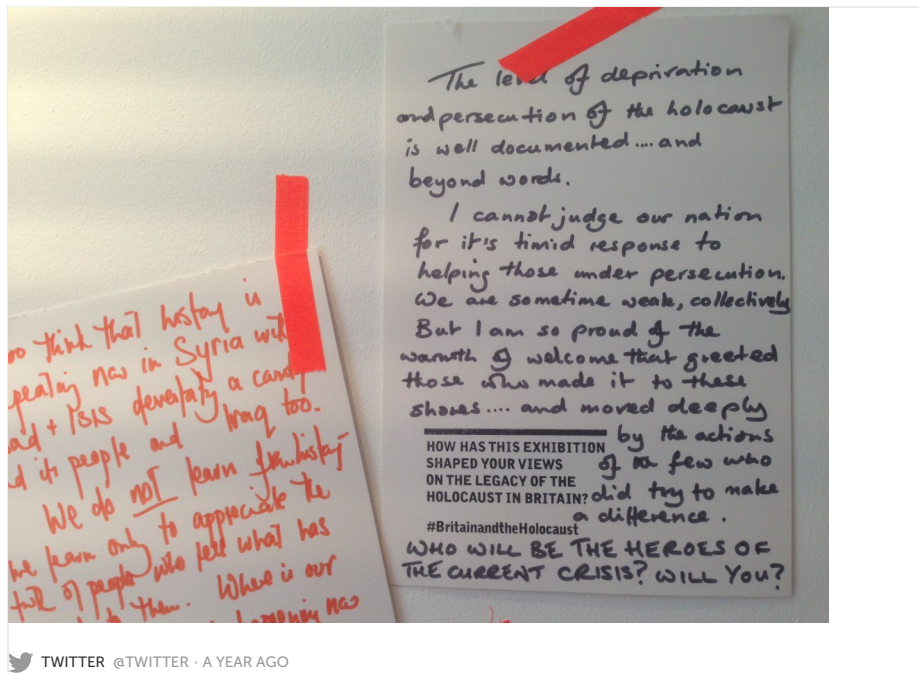 The level of deprivation
and persecution of the holocaust
is well documented.... and
beyond words.
I cannot judge our nation
for it's timid response to
helping those under persecution.
We are sometime weak, collectively
But I am so proud of the
warmth of welcome that greeted
those who made it to these
shores.... and moved deeply
by the actions
of a few who
did try to make
a difference.
HOW HAS THIS EXHIBITION
SHAPED YOUR VIEWS
ON THE LEGACY OF THE
HOLOCAUST IN BRITAIN?
#BritainandtheHolocaust
WHO WILL BE THE HEROES OF
THE CURRENT CRISIS? WILL YOU?
think that history is
now in Syria with
+ ISIS a
its people and Iraq too.
We do NOT learn from history
We learn only to appreciate the
of people who felt what has
to them. Where is our
now
TWITTER @TWITTER · A YEAR AGO